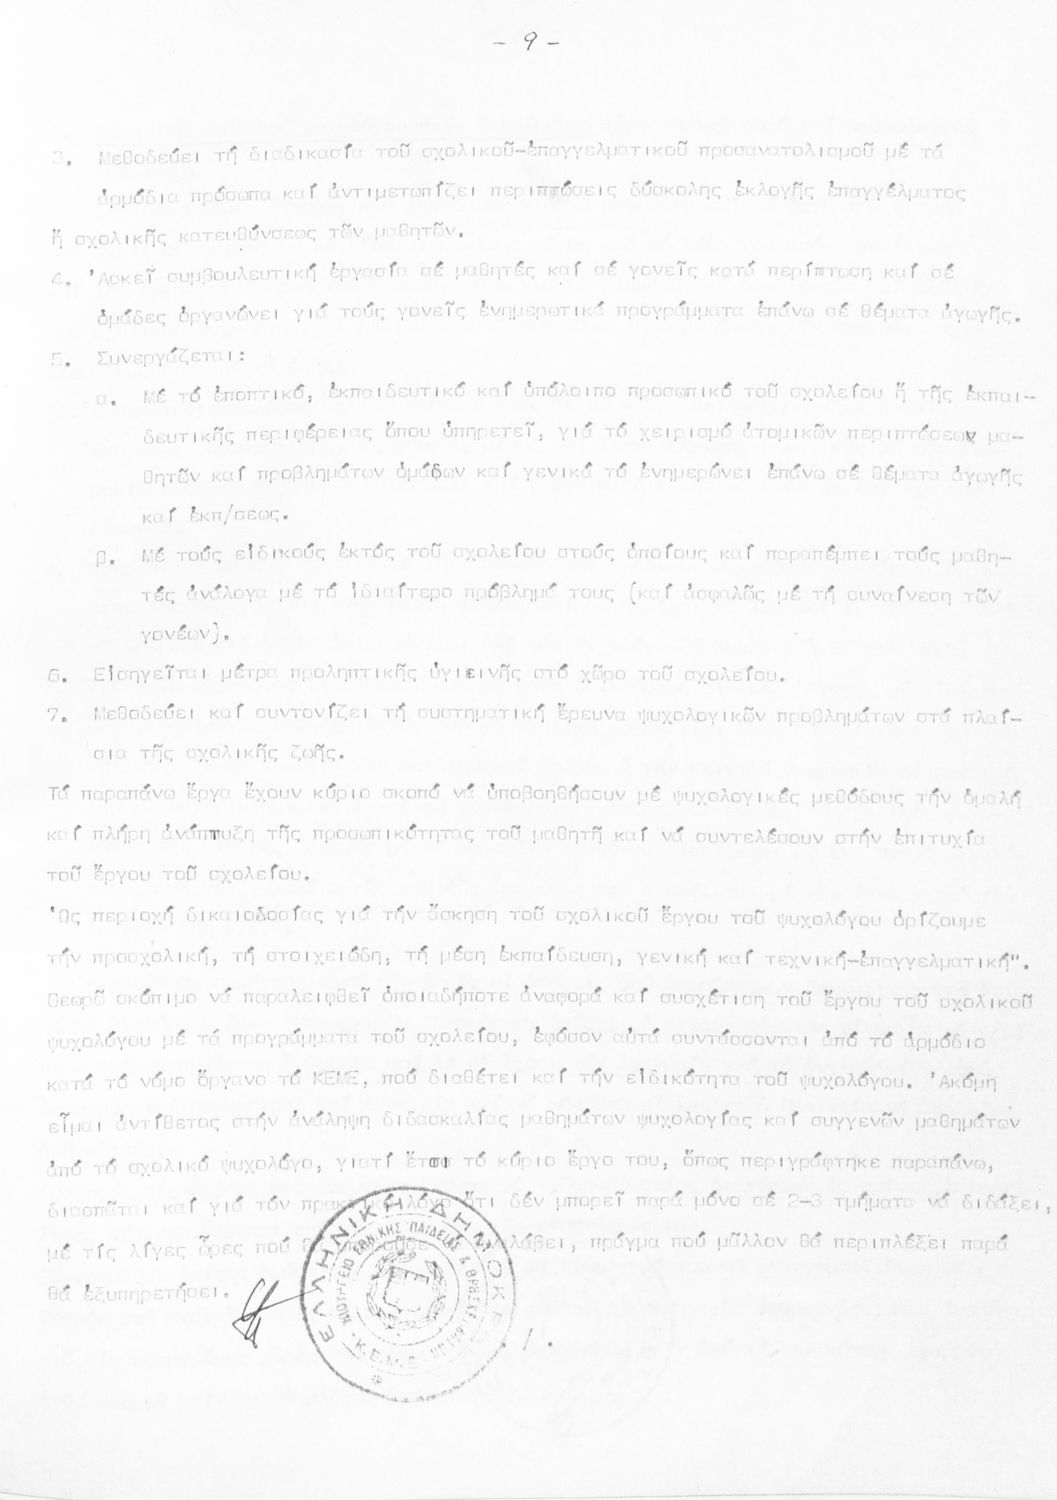 - 9 -
3. Μεθοδεύει τή διαδικασία τοῦ σχολικοῦ-ἐπαγγελματικοῦ προσανατολισμοῦ μέ τά
ἁρμόδια πρόσωπα καί ἀντιμετωπίζει περιπτώσεις δύσκολης ἐκλογῆς ἐπαγγέλματος
ἤ σχολικῆς κατευθύνσεως τῶν μαθητῶν.
4. Ἀσκεῖ συμβουλευτική ἐργασία σέ μαθητές καί σέ γονεῖς κατά περίπτωση καί σέ
ὁμάδες ὀργανώνει γιά τούς γονεῖς ἐνημερωτικά προγράμματα ἐπάνω σέ θέματα ἀγωγῆς.
5. Συνεργάζεται:
α. Μέ τό ἐποπτικό, ἐκπαιδευτικό καί ὑπόλοιπο προσωπικό τοῦ σχολείου ἤ τῆς ἐκπαι-
δευτικῆς περιφέρειας ὅπου ὑπηρετεῖ, γιά τό χειρισμό ἀτομικῶν περιπτώσεων μα-
θητῶν καί προβλημάτων ὁμάδων καί γενικά τό ἐνημερώνει ἐπάνω σέ θέματα ἀγωγῆς
καί ἐκπ/σεως.
β. Μέ τούς εἰδικούς ἐκτός τοῦ σχολείου στούς ὁποίους καί παραπέμπει τούς μαθη-
τές ἀνάλογα μέ τό ἰδιαίτερο πρόβλημά τους (καί ἀσφαλῶς μέ τή συναίνεση τῶν
γονέων).
6. Εἰσηγεῖται μέτρα προληπτικῆς ὑγιεινῆς στό χῶρο τοῦ σχολείου.
7. Μεθοδεύει καί συντονίζει τή συστηματική ἔρευνα ψυχολογικῶν προβλημάτων στά πλαί-
σια τῆς σχολικῆς ζωῆς.
Τά παραπάνω ἔργα ἔχουν κύριο σκοπό νά ὑποβοηθήσουν μέ ψυχολογικές μεθόδους τήν ὁμαλή
καί πλήρη ἀνάπτυξη τῆς προσωπικότητας τοῦ μαθητῆ καί νά συντελέσουν στήν ἐπιτυχία
τοῦ ἔργου τοῦ σχολείου.
Ὡς περιοχή δικαιοδοσίας γιά τήν ἄσκηση τοῦ σχολικοῦ ἔργου τοῦ ψυχολόγου ὁρίζουμε
τήν προσχολική, τή στοιχειώδη, τή μέση ἐκπαίδευση, γενική καί τεχνική-ἐπαγγελματική".
Θεωρῶ σκόπιμο νά παραλειφθεῖ ὁποιαδήποτε ἀναφορά καί συσχέτιση τοῦ ἔργου τοῦ σχολικοῦ
ψυχολόγου μέ τά προγράμματα τοῦ σχολείου, ἐφόσον αὐτά συντάσσονται ἀπό τό ἁρμόδιο
κατά τό νόμο ὄργανο τό ΚΕΜΕ, πού διαθέτει καί τήν εἰδικότητα τοῦ ψυχολόγου. Ἀκόμη
εἶμαι ἀντίθετος στήν ἀνάληψη διδασκαλίας μαθημάτων ψυχολογίας καί συγγενῶν μαθημάτων
ἀπό τό σχολικό ψυχολόγο, γιατί ἔτσι τό κύριο ἔργο του, ὅπως περιγράφτηκε παραπάνω,
διασπᾶται καί γιά τόν πρακτικό λόγο ὅτι δέν μπορεῖ παρά μόνο σέ 2-3 τμήματα νά διδάξει,
μέ τίς λίγες ὧρες πού θά ἀναλάβει, πράγμα πού μᾶλλον θά περιπλέξει παρά
θά ἐξυπηρετήσει.
ΕΛΛΗΝΙΚΗ ΔΗΜΟΚΡ
ΕΘΝΙΚΗΣ ΠΑΙΔΕΙΑΣ & ΘΡΗΣΚΕ
Κ.Ε.Μ.Ε
. / .